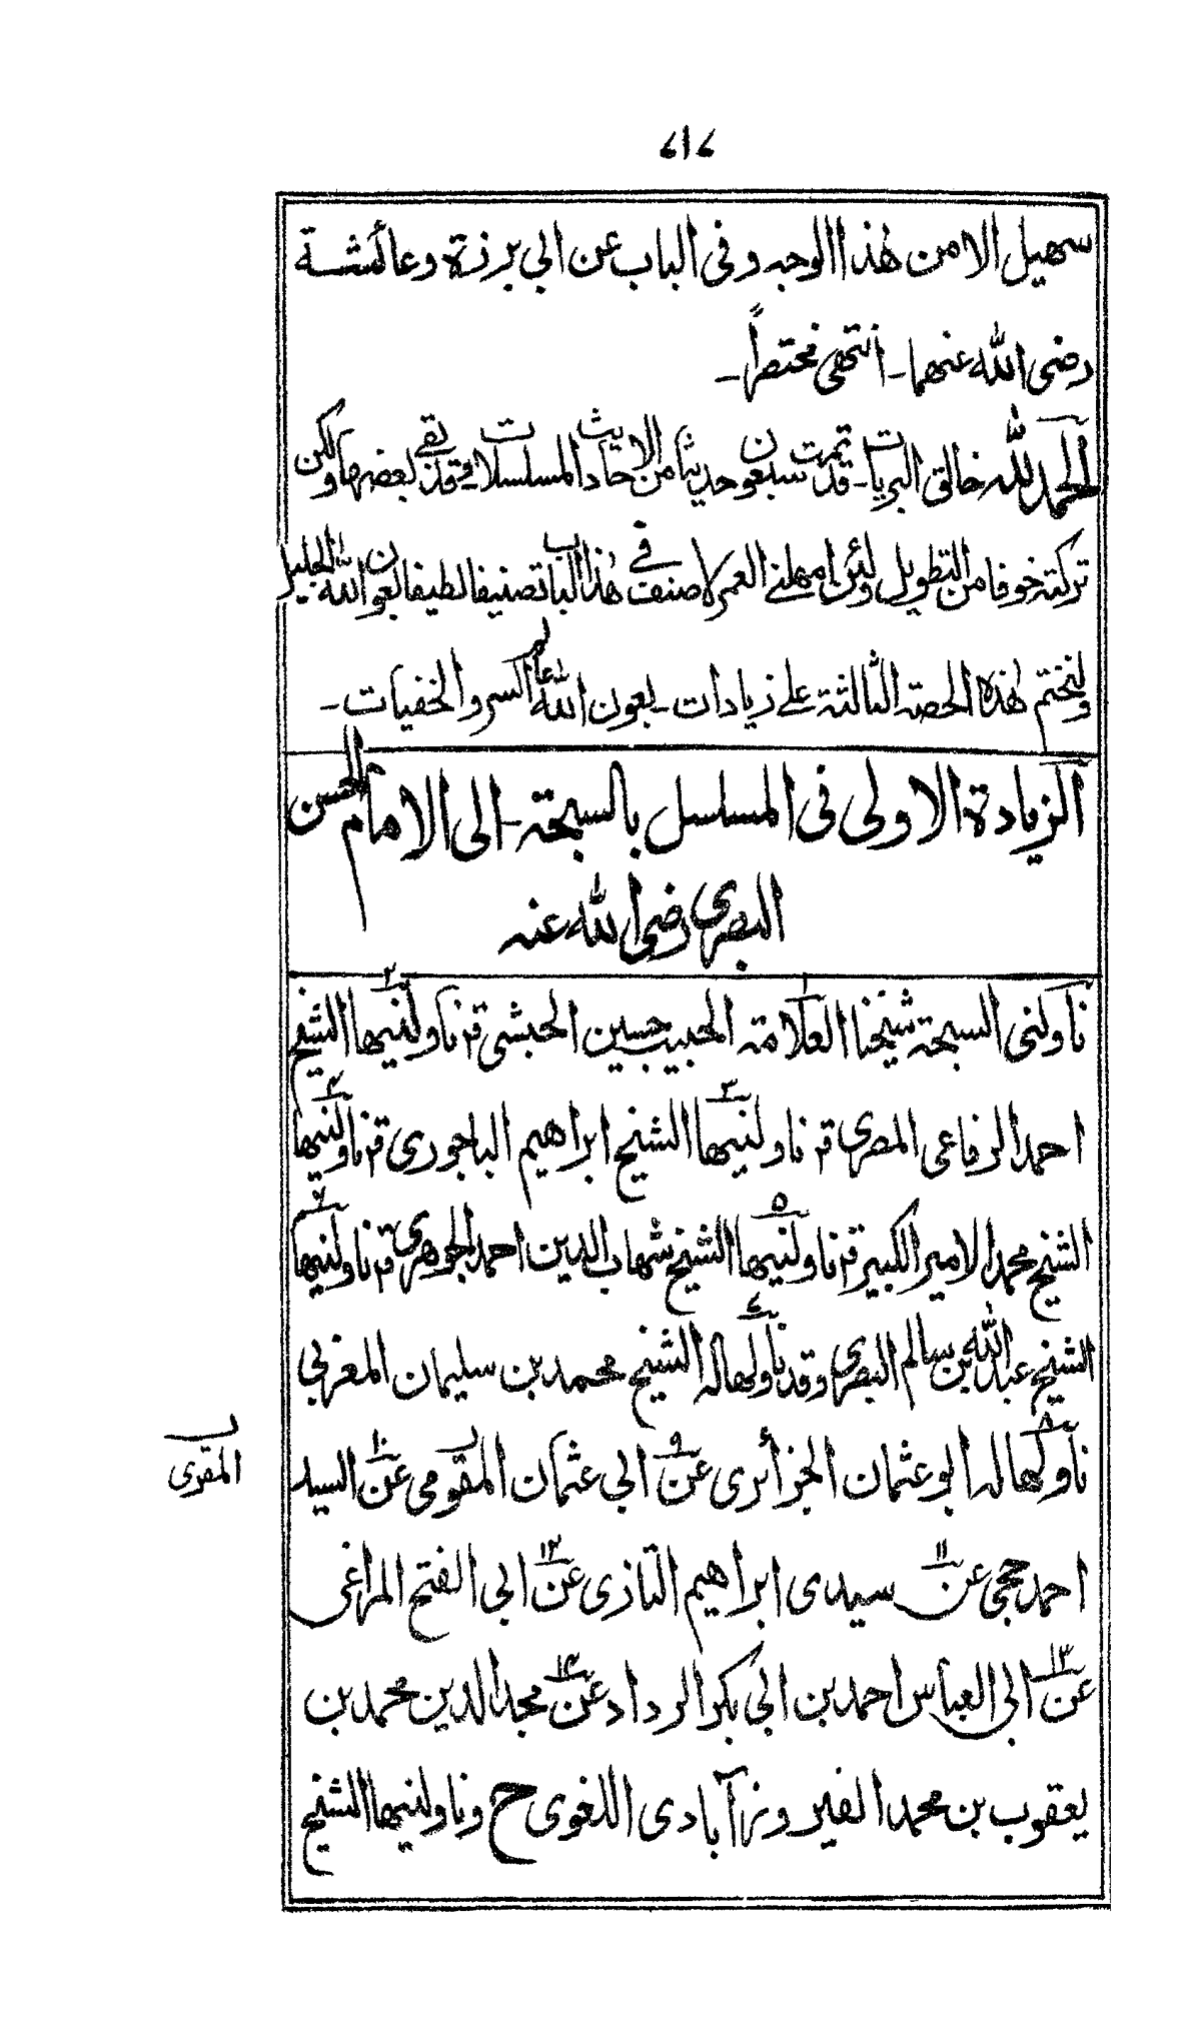 ۷۱۷
سهيل الا من هذا الوجه وفى الباب عن ابى برزة وعائشة
رضى الله عنهما ـ انتهى مختصراً ـ
الحمد لله خالق البريات ـ قد تمت سبعون حديثا من الاحاديث المسلسلات فى قد بقى بعضها ولكن
تركته خوفا من التطويل ولئن امهلنى العمر لاصنف فى هذا الباب تصنيفا لطيفا بعون الله الجليل
ولنختم هذه الحصة الثالثة على زيادات ـ بعون الله عالم السر والخفيات ـ
الزيادة الاولى فى المسلسل بالسبحة ـ الى الامام الحسن
البصرى رضى الله عنه
ناولنى السبحة شيخنا العلامة ۱ الحبيب حسين الحبشى قز ناولنيها ۲ الشيخ
احمد الرفاعى المصرى قز ناولنيها ۳ الشيخ ابراهيم الباجورى قز ناولنيها ۴
الشيخ محمد الامير الكبير قز ناولنيها ۵ الشيخ شهاب الدين احمد الجوهرى قز ناولنيها ۶
الشيخ عبد الله بن سالم البصرى وقد ناولها له ۷ الشيخ محمد بن سليمان المغربى
ناولها له ۸ ابو عثمان الجزائرى عن ۹ ابى عثمان المقومى ب عن ۱۰ السيد
المقرى ب
احمد حجى عن ۱۱ سيدى ابراهيم التازى عن ۱۲ ابى الفتح المراغى
عن ۱۳ ابى العباس احمد بن ابى بكر الرداد عن ۱۴ مجد الدين محمد بن
يعقوب بن محمد الفيروزآبادى اللغوى ح وناولنيها الشيخ